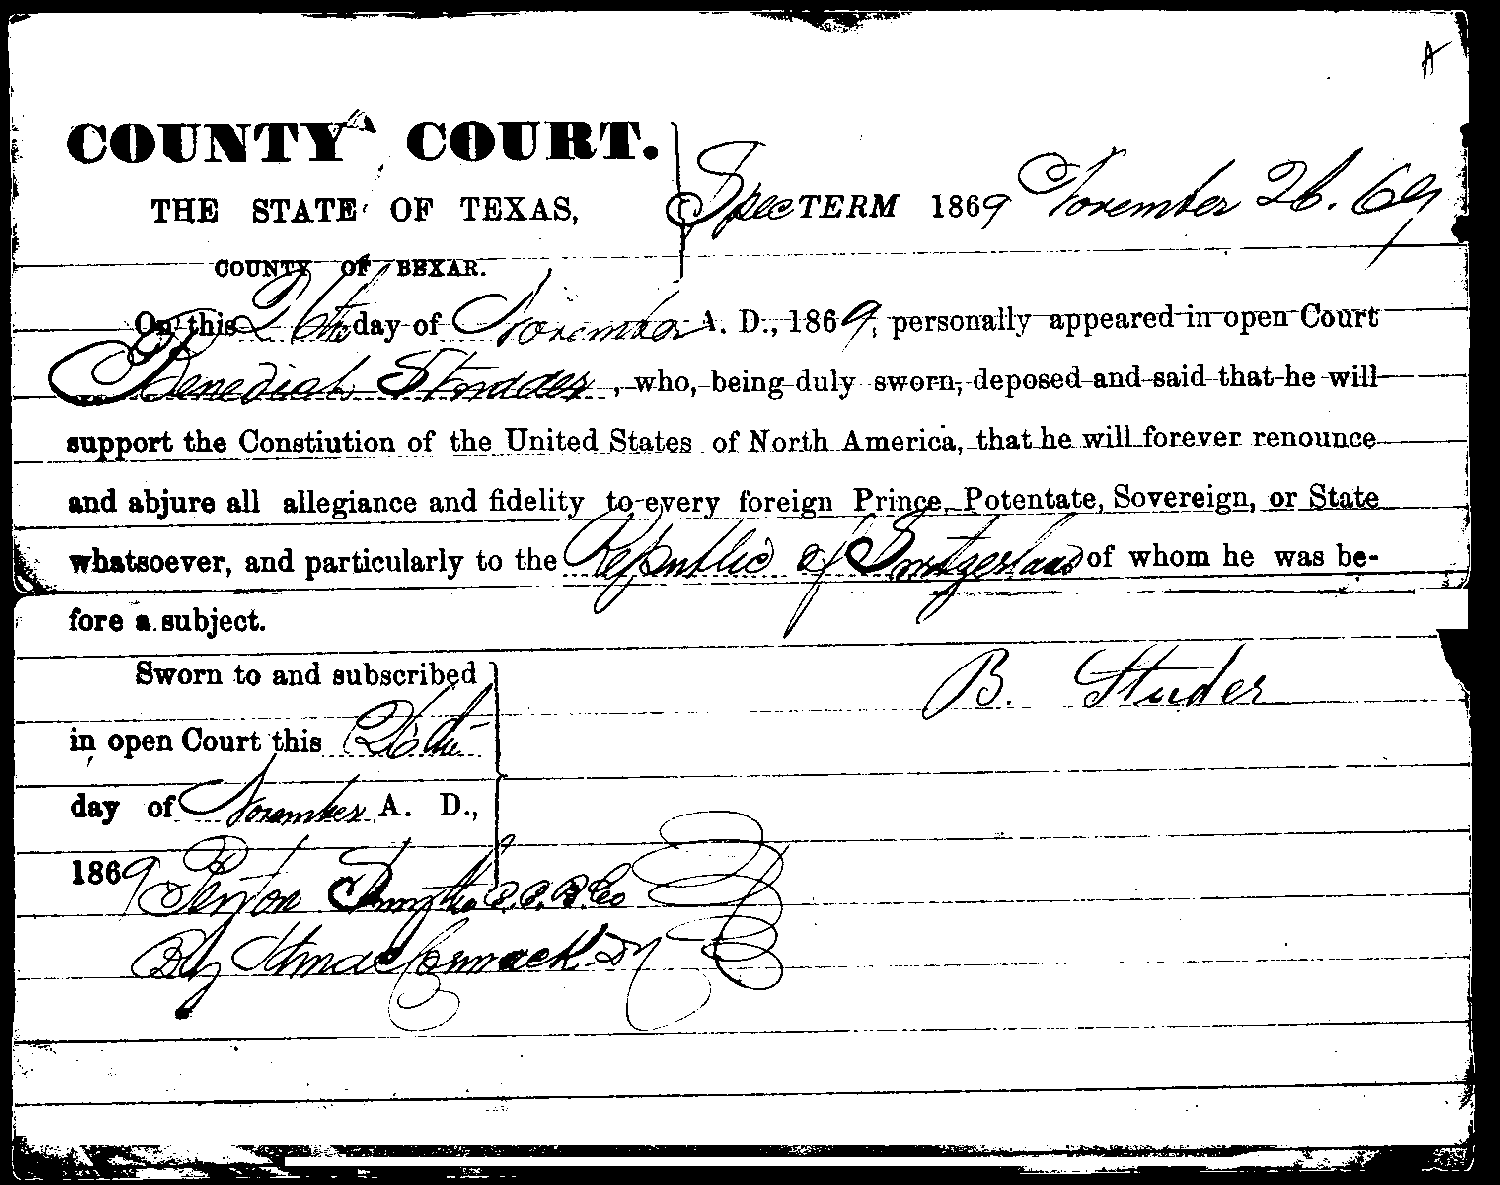 A
COUNTY COURT.
THE STATE OF TEXAS,
COUNTY OF BEXAR.
Spec TERM 1869 November 26. 69
On this 26th day of November A. D., 1869, personally appeared in open Court
Benedict Studder, who, being duly sworn, deposed and said that he will
support the Constiution of the United States of North America, that he will forever renounce
and abjure all allegiance and fidelity to every foreign Prince, Potentate, Sovereign, or State
whatsoever, and particularly to the Republic of Switzerland of whom he was be-
fore a subject.
B. Studer
Sworn to and subscribed
in open Court this 26th
day of November A. D.,
1869 Penton Smythe C.C.B.Co
By